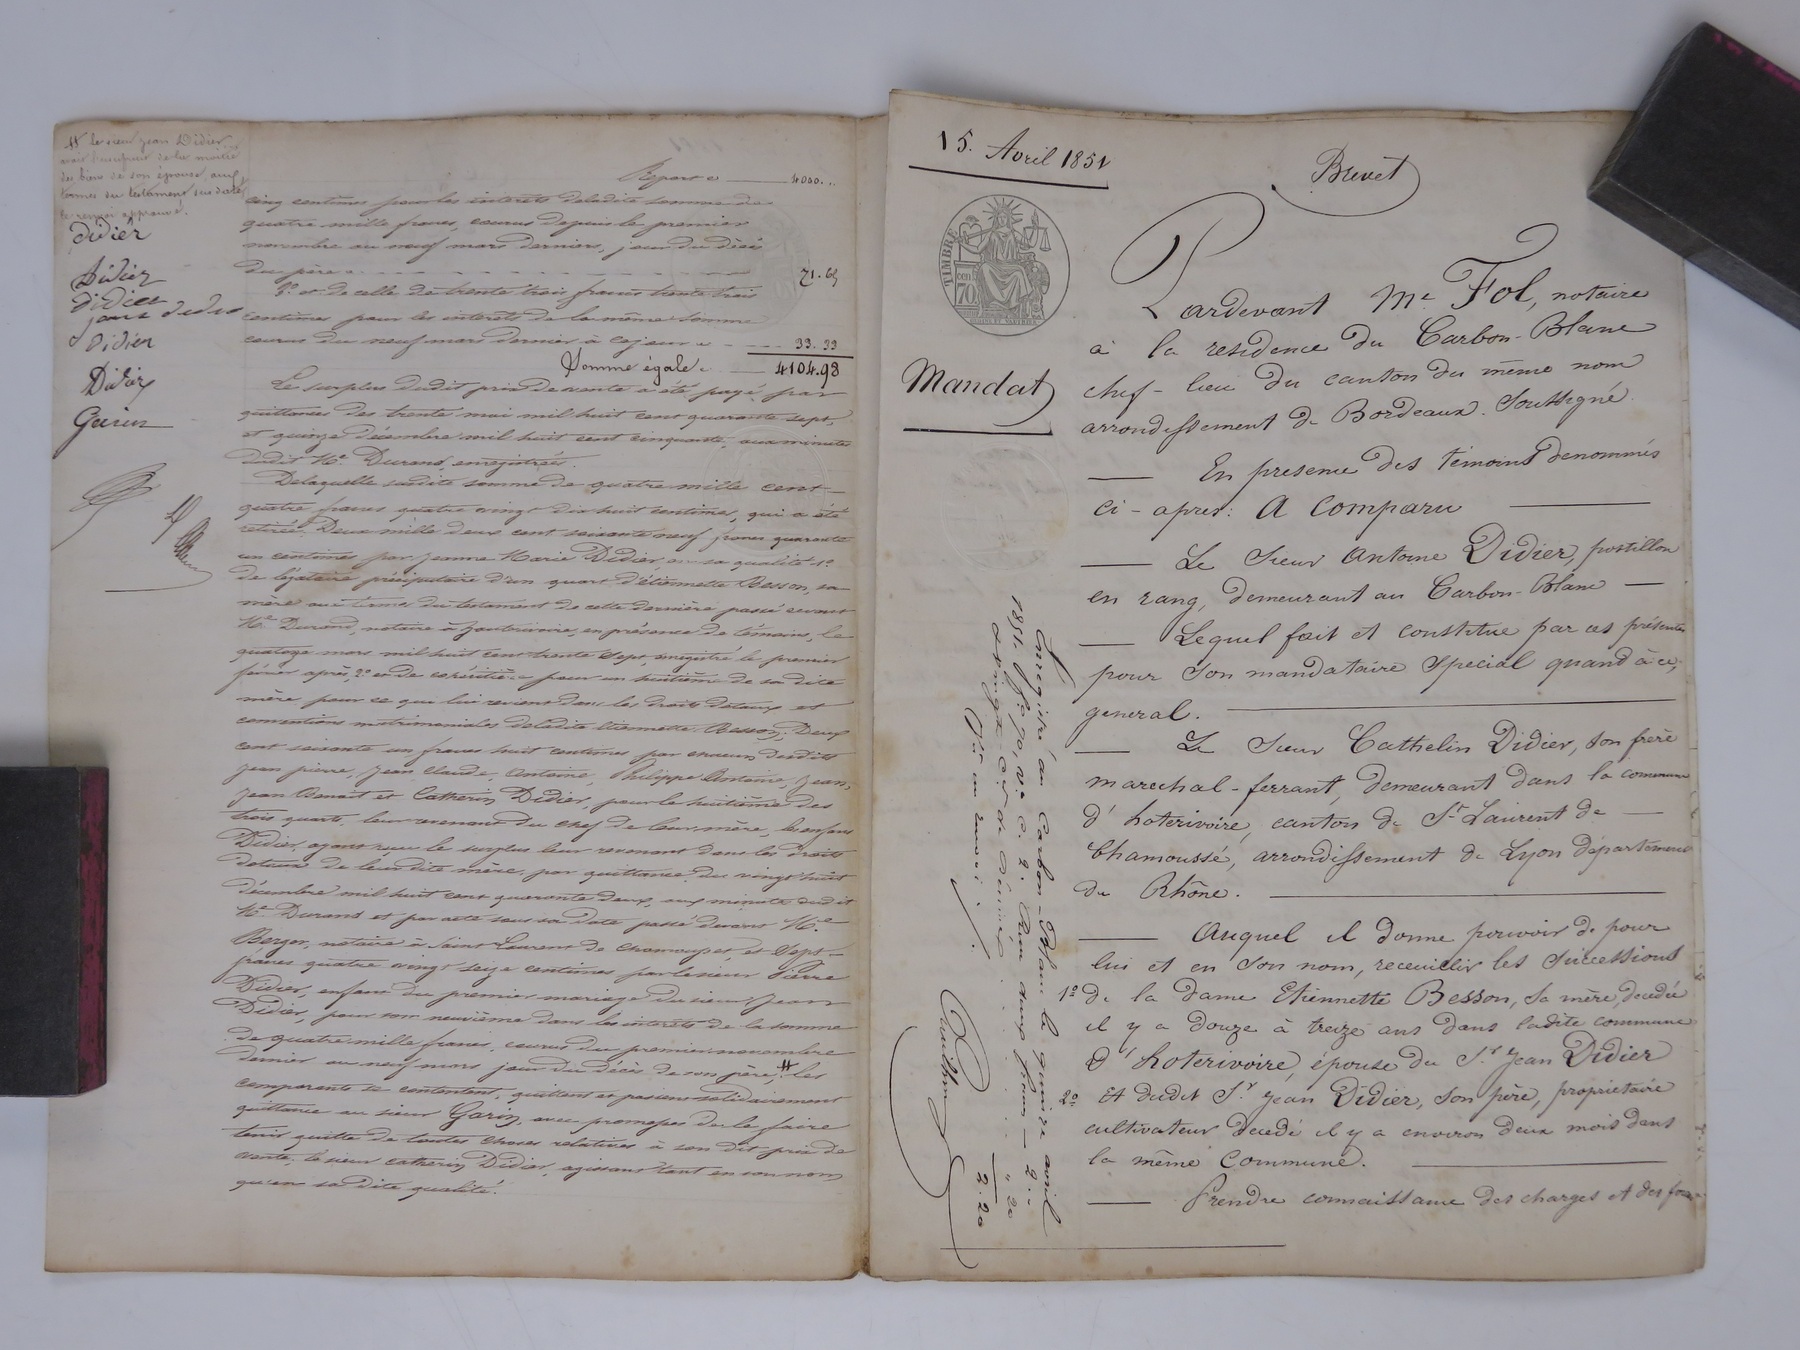 # le sieur Jean Didier
avoir l'usufruit de la moitié
des biens de son épouse, aux
termes du testament sus daté
le renvoi approuvé.
Didier
Didier
Didier
Didier
Didier
Garin
Report c 4000. ..
cinq centimes pour les intérêts deladite somme de
quatre mille francs, courus depuis le premier
novembre au neuf mars dernier, jour du décès
du père 71.65
3° et de celle de trente trois francs trente trois
centimes pour les intérêts de la même somme
courus du neuf mars dernier à ce jour 33.33
Somme égale 4104.98
Le surplus dudit prix de vente a été payé par
quittances des trente mai mil huit cent quarante sept,
et quinze décembre mil huit cent cinquante, aux minutes
dudit Me. Durand, enregistrées.
Delaquelle susdite somme de quatre mille cent
quatre francs quatre vingt dix huit centimes, qui a été
retirée Deux mille deux cent soixante neuf francs quarante
un centimes par Jeanne Marie Didier, en sa qualité 1°
de légataire préciputaire d'un quart d'étiennette Besson, sa
mère aux termes du testament de cette dernière passé devant
Me. Durand, notaire à hauterivoire, en présence de témoins, le
quatorze mars mil huit cent trente sept, enregistré le premier
février après, 2° et de cohéritière pour un huitième de sa dite
mère pour ce qui lui revient dans les droits dotaux et
conventions matrimoniales deladite étiennette Besson; Deux
cent soixante un francs huit centimes par chacun desdits
Jean pierre, Jean Claude, Antoine, Philippe Antoine, Jean,
Jean Benoit et Catherin Didier, pour le huitième des
trois quarts, leur revenant du chef de leur mère, les enfans
Didier, ayant reçu le surplus leur revenant dans les droits
dotaux de leur dite mère, par quittance du vingt huit
décembre mil huit cent quarante deux, aux minutes dudit
Me. Durand et par acte sous sa date passé devant Me.
Berger, notaire à Saint Laurent de Chamousset, et Sept
francs quatre vingt seize centimes par le sieur Pierre
Didier, enfant du premier mariage du sieur Jean
Didier, pour son neuvième dans les intérêts de la somme
de quatre mille francs, courus du premier novembre
dernier au neuf mars jour du décès de son père, # les
comparants se contentent, quittent et passent solidairement
quittance au sieur Garin, avec promesse de le faire
tenir quitte de toutes choses relatives à son dit prix de
vente, le sieur Catherin Didier, agissant tant en son nom
qu'en sa dite qualité.
15. Avril 1851
Brevet
TIMBRE
70
Mandat
Pardevant Me. Fol, notaire
à la residence du Carbon-Blanc
chef-lieu du canton du même nom
arrondissement de Bordeaux. Soussigné.
En presence des témoins denommés
ci-après: A Comparu
Le Sieur Antoine Didier, postillon
en rang, demeurant au Carbon-Blanc
Lequel fait et constitue par ces présentes
pour Son mandataire Special quand à ce,
general.
Le Sieur Cathelin Didier, Son frère
marechal-ferrant, demeurant dans la commune
d'hoterivoire, canton de St. Laurent de
Chamoussé, arrondissement de Lyon département
du Rhône.
Auquel il donne pouvoir de pour
lui et en Son nom, receuillir les Successions
1° de la dame Etiennette Besson, Sa mère, decedée
il y a douze à treize ans dans ladite commune
d'hoterivoire, épouse du Sr. Jean Didier
2° Et dudit Sr. Jean Didier, Son père, propriétaire
cultivateur decedé il y a environ deux mois dans
la même Commune.
Prendre connaissance des charges et des forces
Enregistré au Carbon-Blanc le quinze avril
1851. fo. 70, vo. C. 2. Reçu deux francs 2. "
et vingt c. pr. décime " 20
2.20